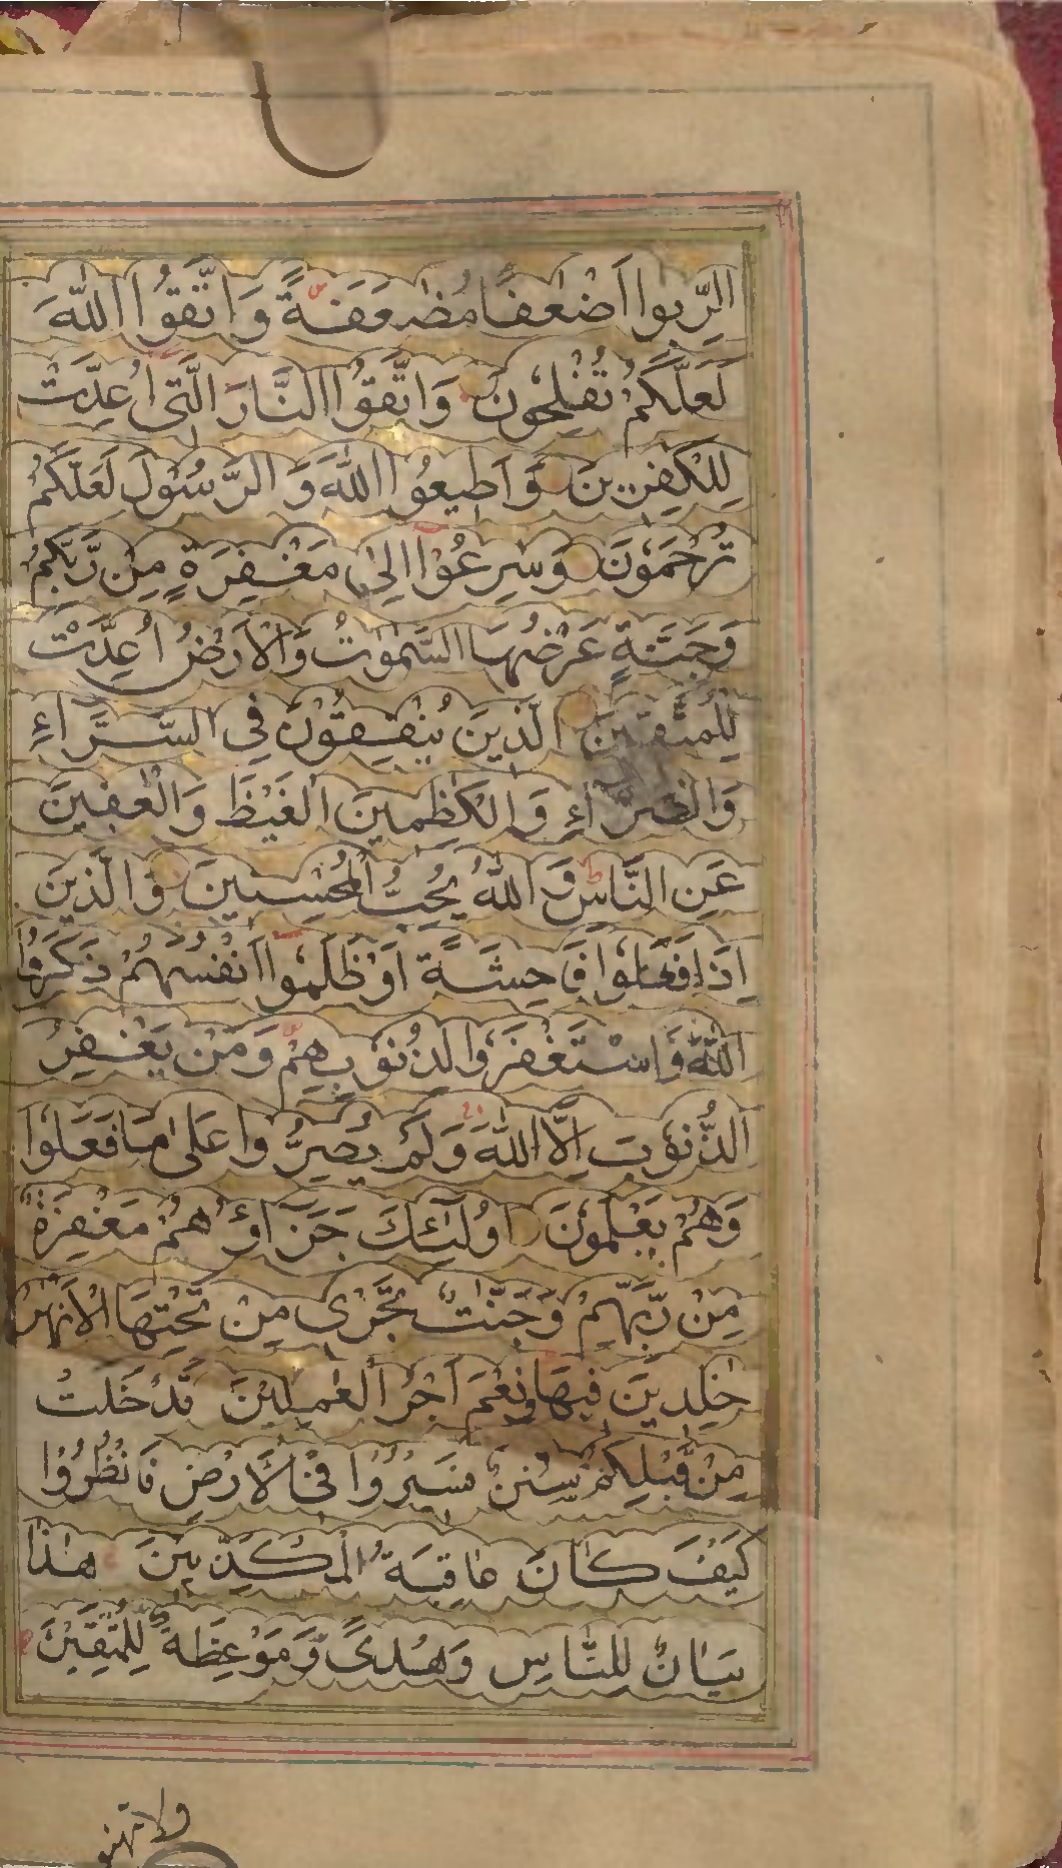 الرِّبوا اَضْعٰفًا مُضٰعَفَةً وَاتَّقُوا اللّٰهَ
لَعَلَّكُمْ تُفْلِحُونَ وَاتَّقُوا النَّارَ الَّتِي اُعِدَّتْ
لِلْكٰفِرِينَ وَاَطِيعُوا اللّٰهَ وَالرَّسُولَ لَعَلَّكُمْ
تُرْحَمُونَ وَسَارِعُوْا اِلىٰ مَغْفِرَةٍ مِنْ رَّبِّكُمْ
وَجَنَّةٍ عَرْضُهَا السَّمٰوٰتُ وَالْاَرْضُ اُعِدَّتْ
لِلْمُتَّقِينَ الَّذِينَ يُنْفِقُوْنَ فِي السَّرَّاءِ
وَالضَّرَّاءِ وَالْكٰظِمِينَ الْغَيْظَ وَالْعٰفِينَ
عَنِ النَّاسِ وَاللّٰهُ يُحِبُّ الْمُحْسِنِينَ وَالَّذِينَ
اِذَا فَعَلُوا فَاحِشَةً اَوْ ظَلَمُوا اَنْفُسَهُمْ ذَكَرُوا
اللّٰهَ فَاسْتَغْفَرُوا لِذُنُوْبِهِمْ وَمَنْ يَغْفِرُ
الذُّنُوْبَ اِلَّا اللّٰهَ وَلَمْ يُصِرُّوا عَلىٰ مَا فَعَلُوْا
وَهُمْ يَعْلَمُوْنَ اُولٰئِكَ جَزَاؤُهُمْ مَغْفِرَةٌ
مِنْ رَّبِّهِمْ وَجَنّٰتٌ تَجْرِى مِنْ تَحْتِهَا الْاَنْهٰرُ
خٰلِدِينَ فِيهَا وَنِعْمَ اَجْرُ الْعٰمِلِيْنَ قَدْ خَلَتْ
مِنْ قَبْلِكُمْ سُنَنٌ فَسِيْرُوْا فِى الْاَرْضِ فَانْظُرُوْا
كَيْفَ كَانَ عَاقِبَةُ الْمُكَذِّبِيْنَ هٰذَا
بَيَانٌ لِلنَّاسِ وَهُدىً وَّمَوْعِظَةٌ لِلْمُتَّقِيْنَ
ولا تهنو